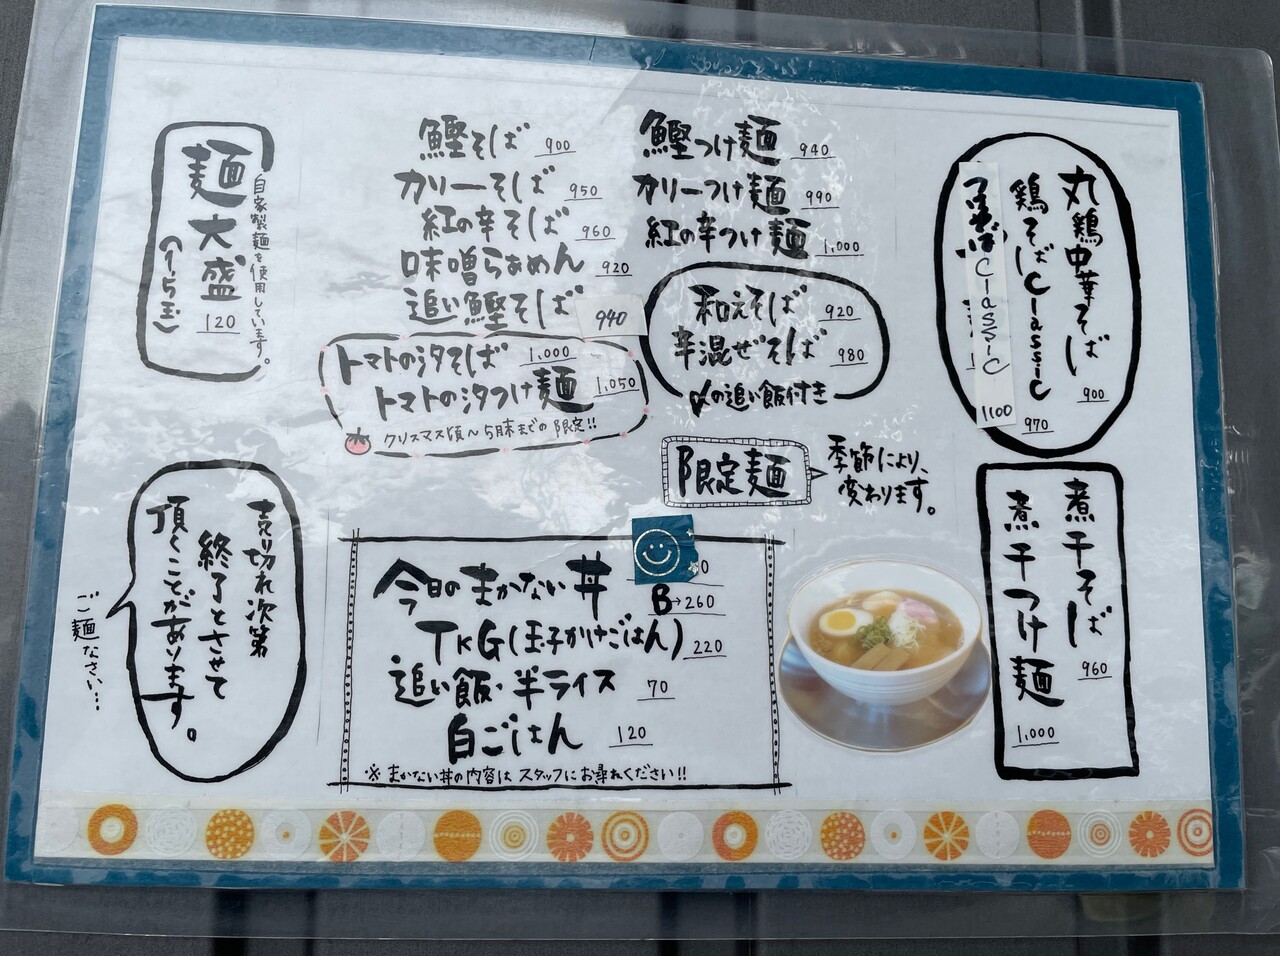 丸鶏中華そば 900
鶏そばClassic 970
Classic 1100
煮干そば 960
煮干つけ麺 1,000
鰹そば 900
カリーそば 950
紅の辛そば 960
味噌らぁめん 920
追い鰹そば 940
トマトの汐そば 1,000
トマトの汐つけ麺 1,050
クリスマス頃〜5月末までの限定!!
鰹つけ麺 940
カリーつけ麺 990
紅の辛つけ麺 1,000
和えそば 920
辛混ぜそば 980
〆の追い飯付き
限定麺
季節により、
変わります。
自家製麺を使用しています。
麺大盛 120
(1.5玉)
今日のまかない丼
B→260
TKG(玉子かけごはん) 220
追い飯・半ライス 70
白ごはん 120
※まかない丼の内容はスタッフにお尋ねください!!
売り切れ次第
終了とさせて
頂くことがあります。
ご麺なさい…